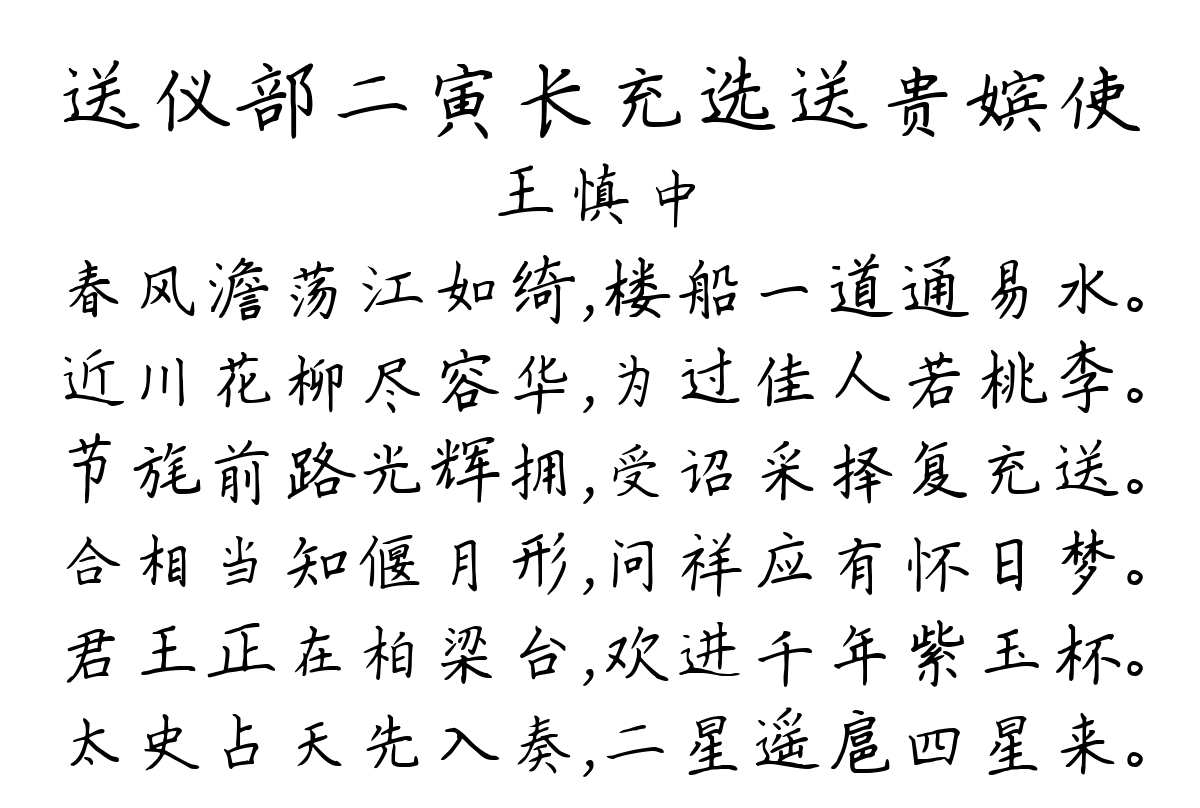 送仪部二寅长充选送贵嫔使
王慎中
春风澹荡江如绮,楼船一道通易水。
近川花柳尽容华,为过佳人若桃李。
节旄前路光辉拥,受诏采择复充送。
合相当知偃月形,问祥应有怀日梦。
君王正在柏梁台,欢进千年紫玉杯。
太史占天先入奏,二星遥扈四星来。